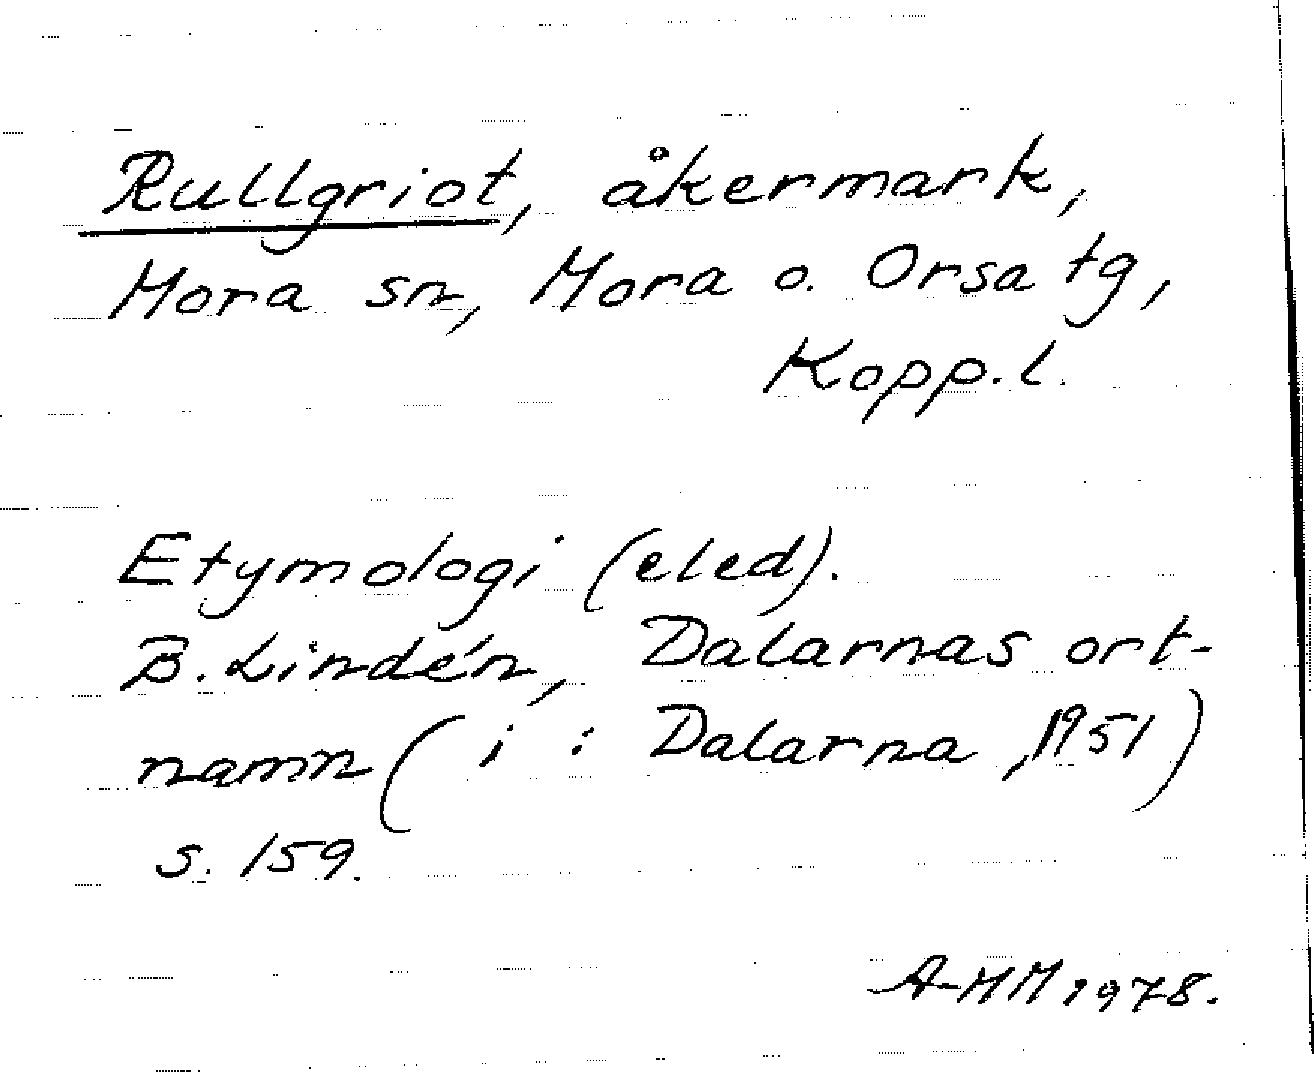 Rullgriot, åkermark,
Mora sn, Mora o. Orsa tg,
Kopp.l.
Etymologi (eled).
B. Lindén, Dalarnas ort-
namn (i: Dalarna, 1951)
s. 159.
A-MM 1978.